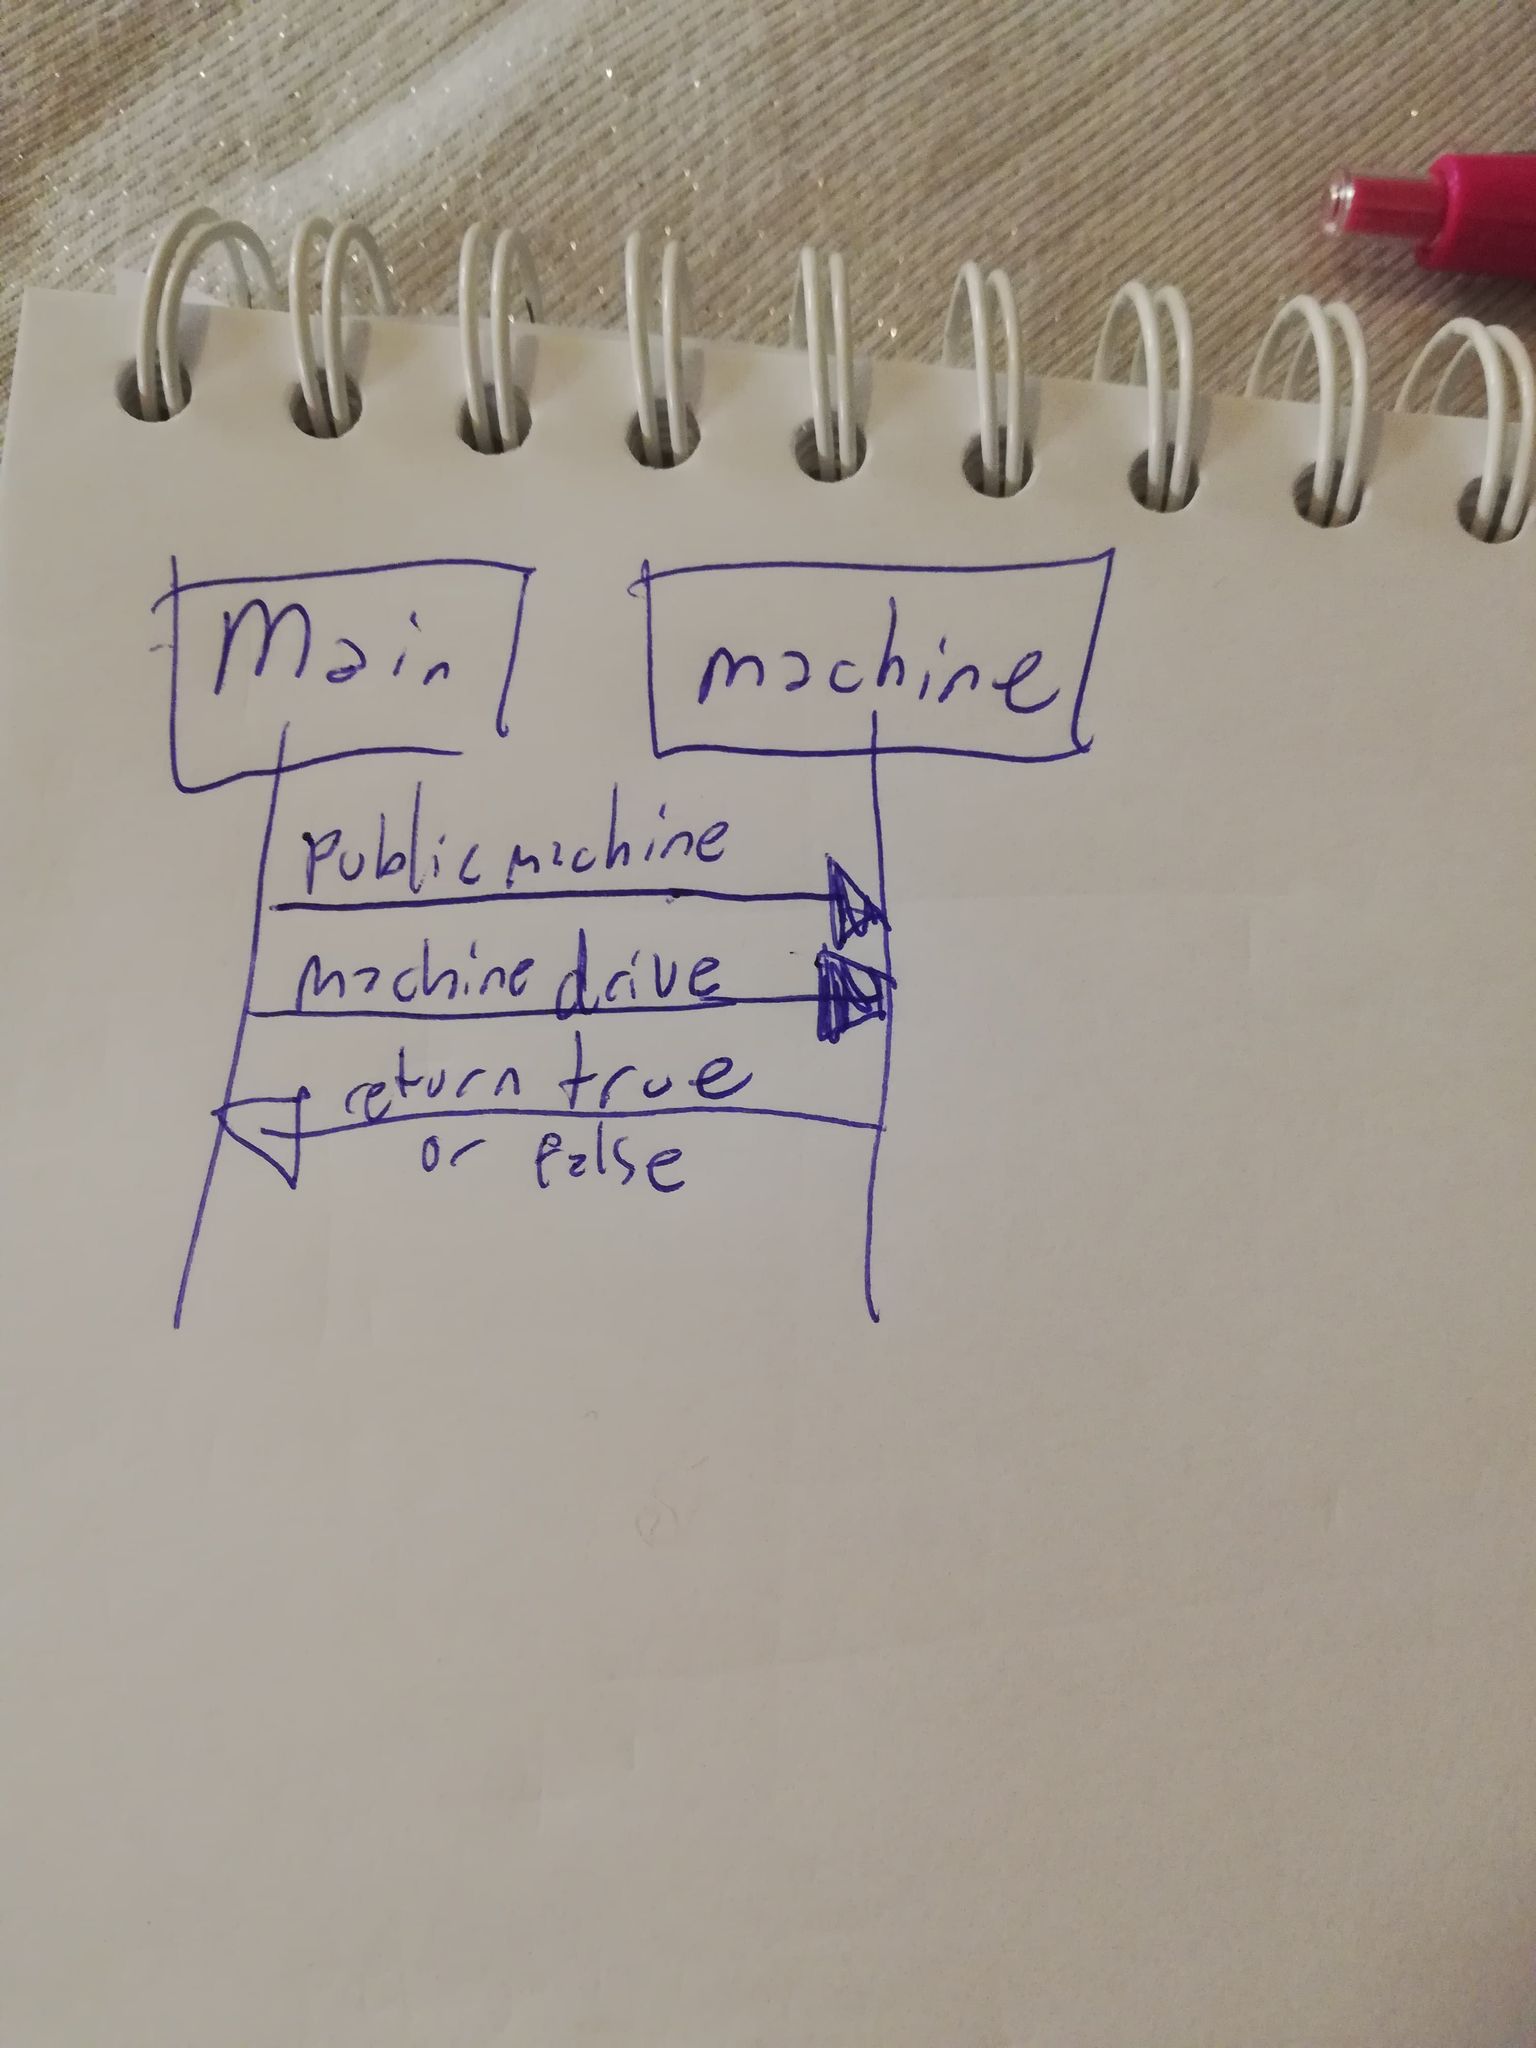 Main
machine
public machine
machine drive
return true
or false